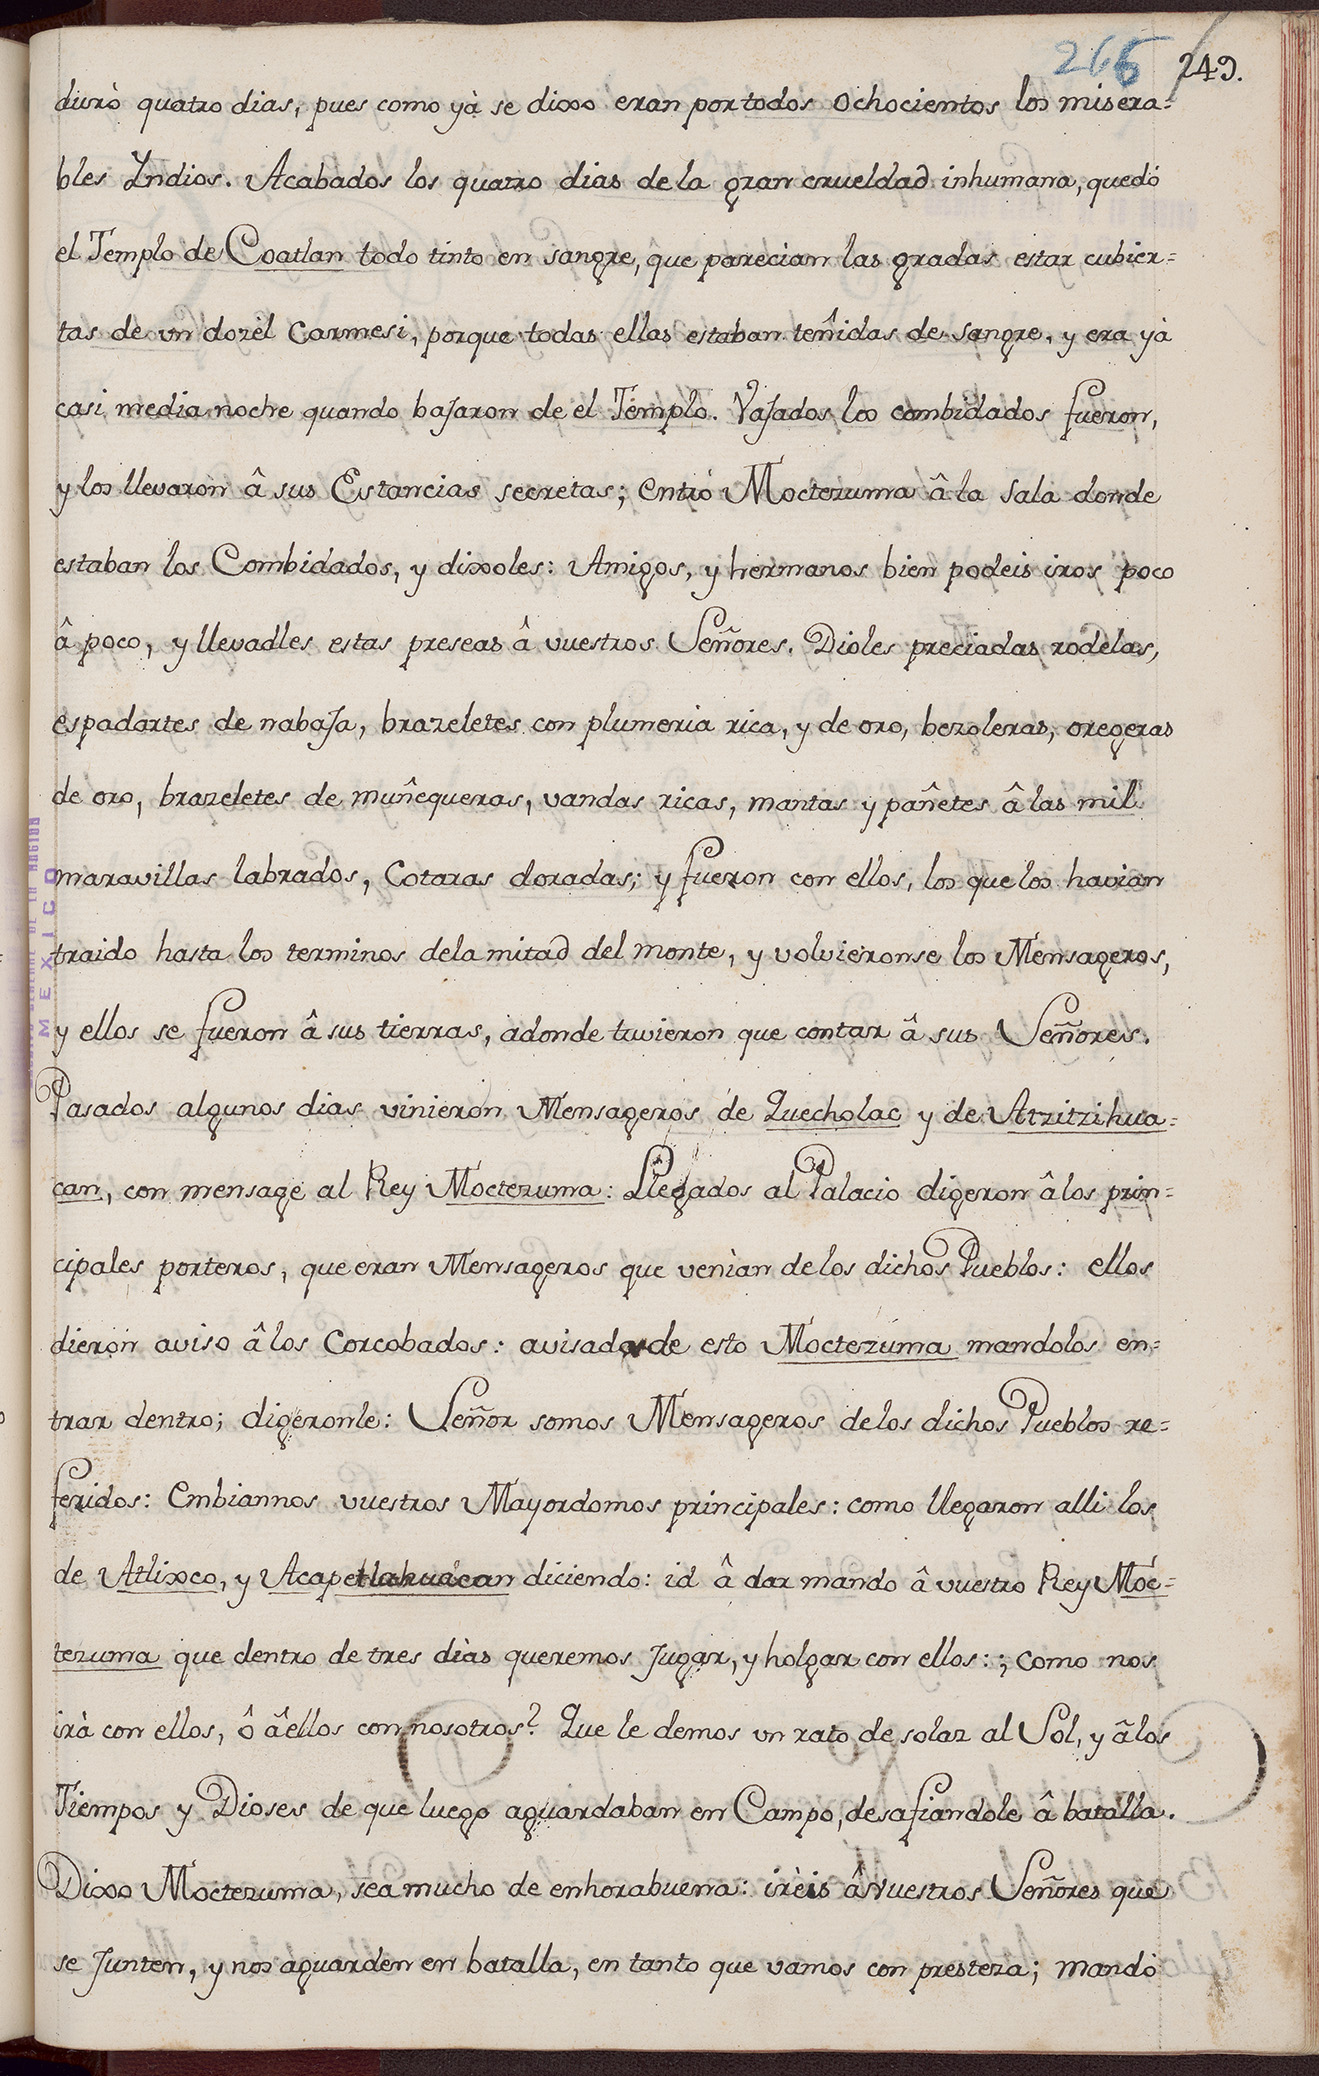 266 249.
duró quatro dias, pues como yà se dixo eran por todos ochocientos los misera=
bles Yndios. Acabados los quatro dias de la gran crueldad inhumana, quedó
el Templo de Coatlan todo tinto en sangre, que parecian las gradas estar cubier=
tas de vn dozèl carmesi, porque todas ellas estaban teñidas de sangre, y era yà
casi media noche quando bajaron de el Templo. Vajados los combidados fueron,
y los llevaron â sus Estancias secretas; entró Moctezuma â la sala donde
estaban los Combidados, y dixoles: Amigos, y hermanos bien podeis iros poco
â poco, y llevadles estas preseas â vuestros Señores. Dioles preciadas rodelas,
espadartes de nabaja, brazeletes con plumeria rica, y de oro, bezoleras, oregeras
de oro, brazeletes de muñequeras, vandas ricas, mantas y pañetes â las mil
maravillas labrados, Cotaras doradas; y fueron con ellos, los que los havian
traido hasta los terminos dela mitad del monte, y volvieronse los Mensageros,
y ellos se fueron â sus tierras, adonde tuvieron que contar â sus Señores.
Pasados algunos dias vinieron Mensageros de Quecholac y de Atzitzihua=
can, con mensage al Rey Moctezuma: Llegados al Palacio digeron â los prin=
cipales porteros, que eran Mensageros que venìan de los dichos Pueblos: ellos
dieron aviso â los Corcobados: avisado de esto Moctezuma mandolos en=
trar dentro; digeronle: Señor somos Mensageros delos dichos Pueblos re=
feridos: Embiannos vuestros Mayordomos principales: como llegaron alli los
de Atlixco, y Acapetlahuacan diciendo: id â dar mando â vuestro Rey Moc=
tezuma que dentro de tres dias queremos jugar, y holgar con ellos:; como nos
irà con ellos, ô âellos con nosotros? Que le demos vn rato de solaz al Sol, y âlos
Tiempos y Dioses de que luego aguardaban en Campo, desafiandole â batalla.
Dixo Moctezuma, sea mucho de enhorabuena: irèis â Vuestros Señores que
se junten, y nos aguarden en batalla, en tanto que vamos con presteza; mandó
MEXICO